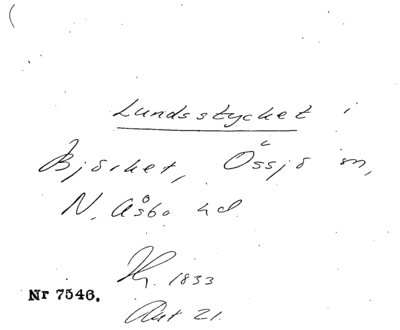 Lundsstycket i
Björket, Össjö sn,
N. Åsbo hd.
Kr. 1833
Nr 7546.
Akt 21.